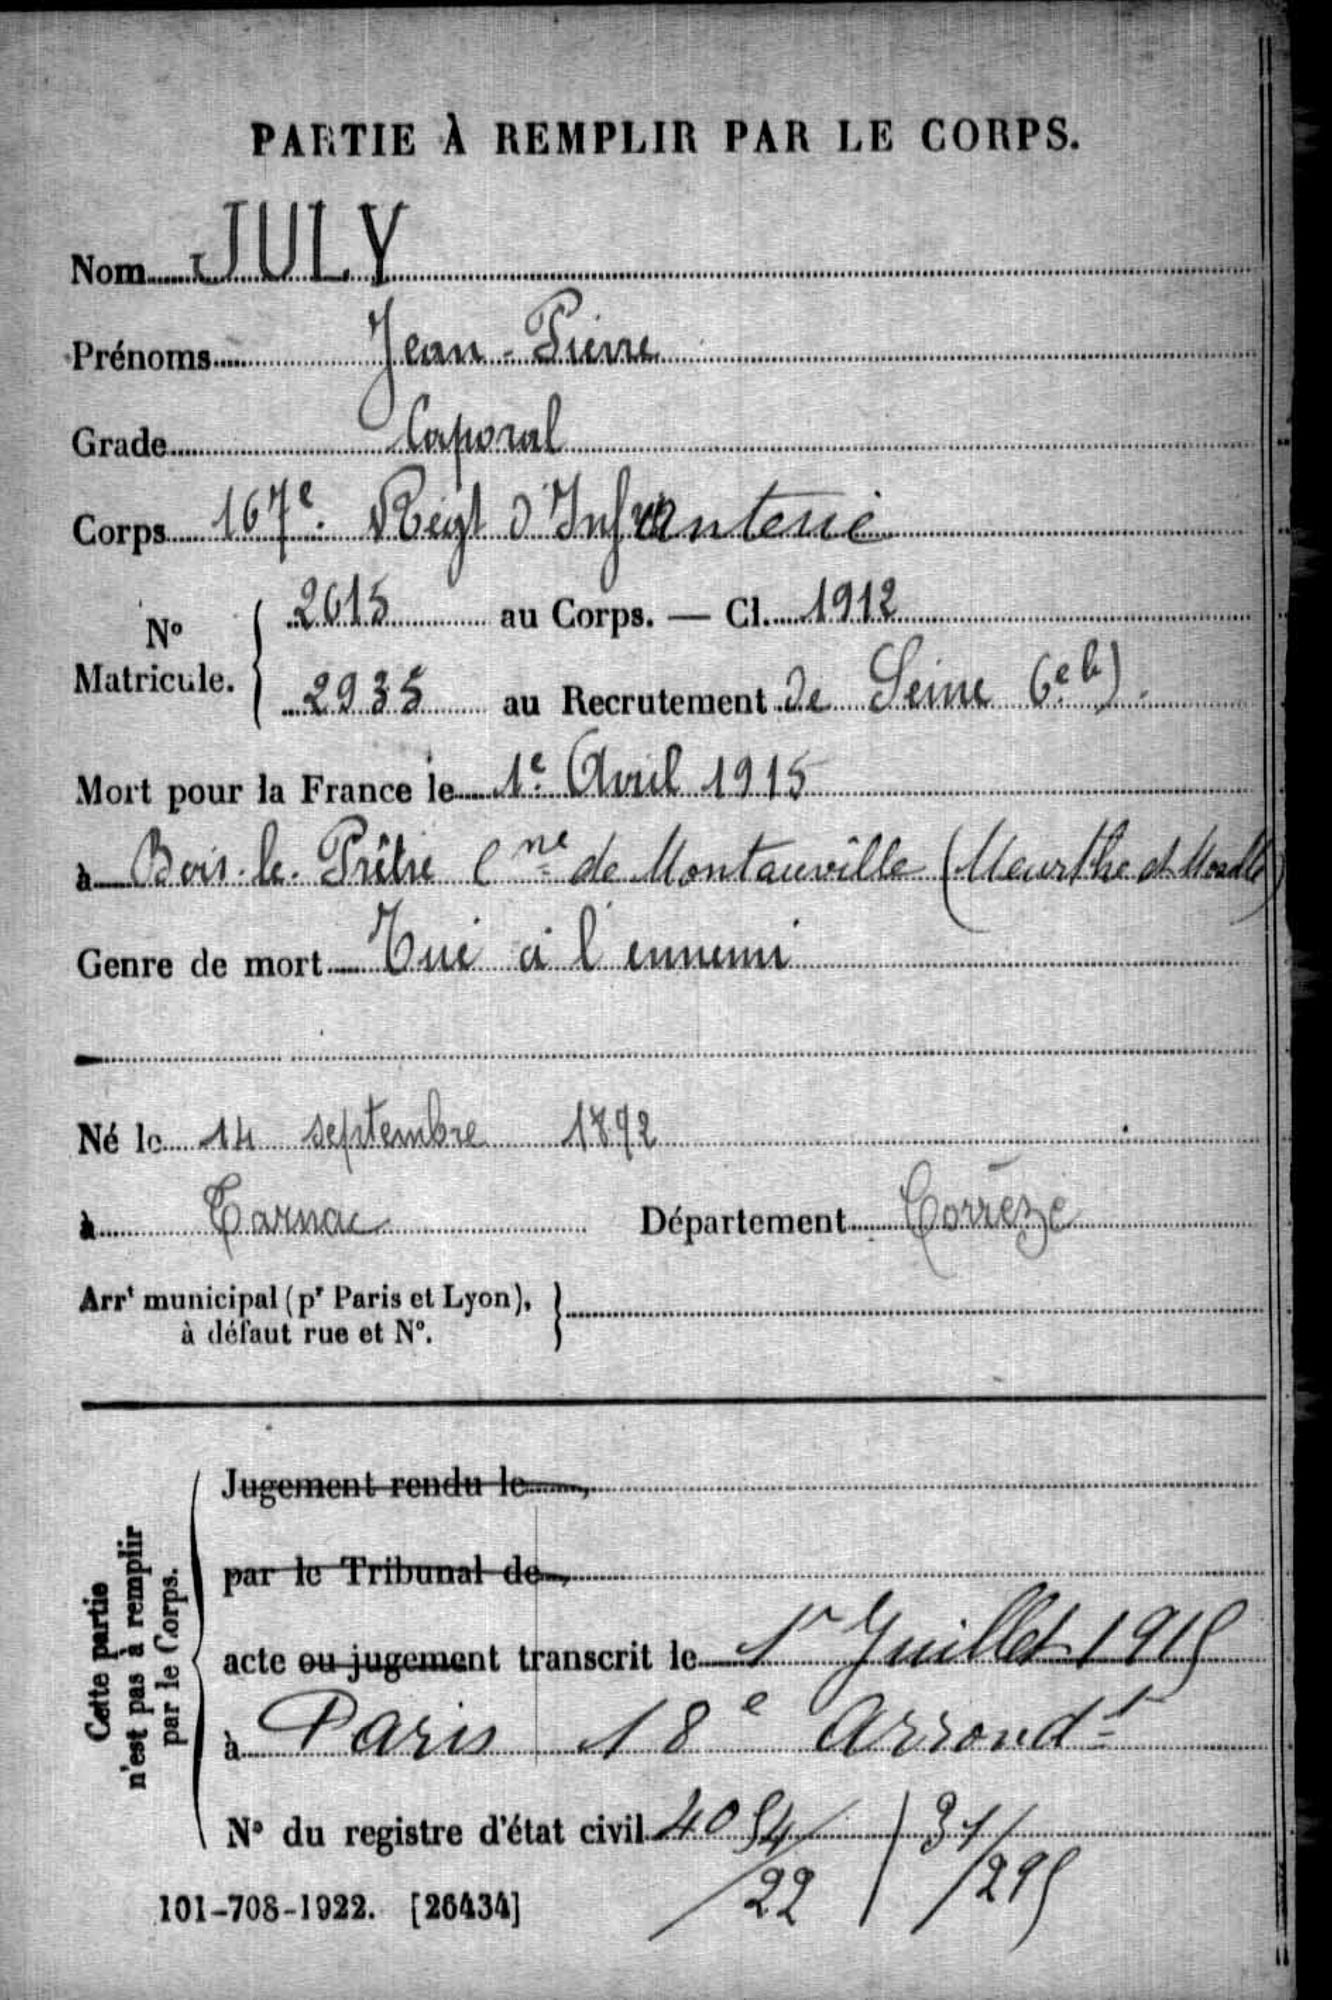 PARTIE À REMPLIR PAR LE CORPS.
Nom JULY
Prénoms Jean-Pierre
Grade Caporal
Corps 167e. Régt d'Infanterie
No Matricule. { 2615 au Corps. — Cl. 1912
2935 au Recrutement de Seine 6e b)
Mort pour la France le 1e Avril 1915
à Bois-le-Prêtre Cne de Montauville (Meurthe et Moselle)
Genre de mort Tué à l'ennemi
Né le 14 septembre 1892
à Tarnac Département Corrèze
Arrt municipal (pr Paris et Lyon), }
à défaut rue et No.
Cette partie
n'est pas à remplir
par le Corps.
Jugement rendu le
par le Tribunal de
acte ou jugement transcrit le 1r Juillet 1915
à Paris 18e Arrondt
No du registre d'état civil 4054/22 / 31/295
101-708-1922. [26434]